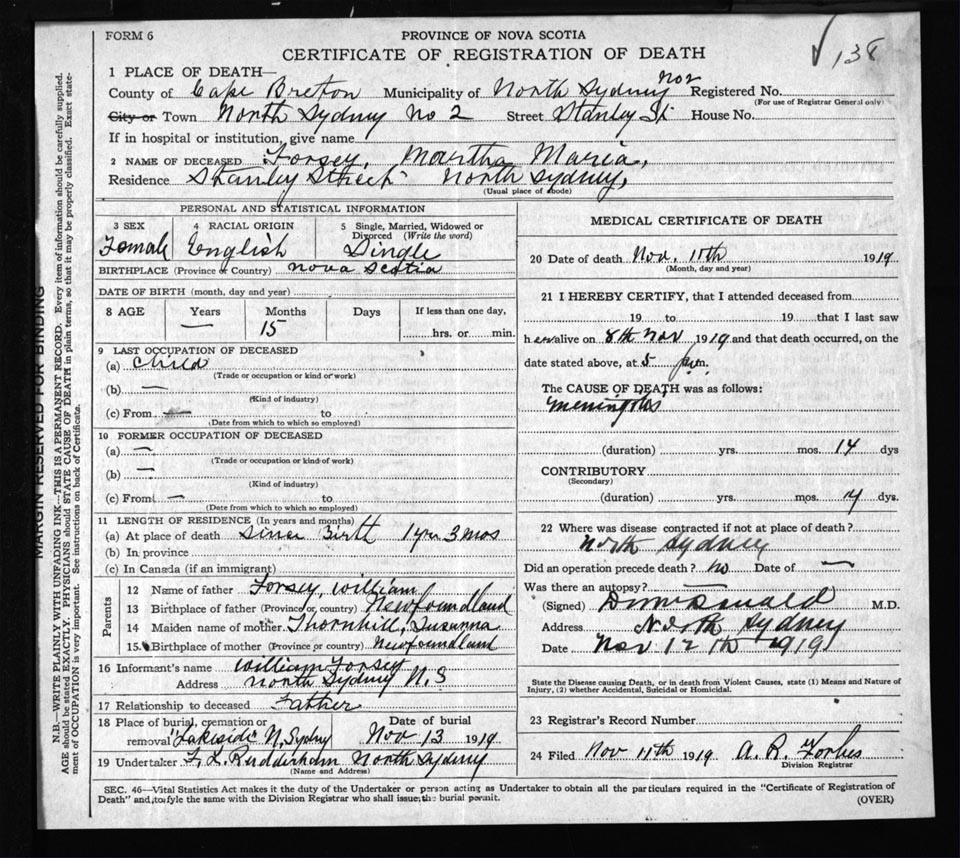 FORM 6
PROVINCE OF NOVA SCOTIA
138
CERTIFICATE OF REGISTRATION OF DEATH
1 PLACE OF DEATH—
County of Cape Breton Municipality of North Sydney No 2 Registered No.
(For use of Registrar General only)
City or Town North Sydney No 2 Street Stanley St House No.
If in hospital or institution, give name
2 NAME OF DECEASED Forsey, Martha Maria,
Residence Stanley Street North Sydney,
(Usual place of abode)
PERSONAL AND STATISTICAL INFORMATION
3 SEX 4 RACIAL ORIGIN 5 Single, Married, Widowed or Divorced (Write the word)
Female English Single
BIRTHPLACE (Province or Country) Nova Scotia
DATE OF BIRTH (month, day and year)
8 AGE Years Months Days If less than one day,
— 15 hrs. or min.
9 LAST OCCUPATION OF DECEASED
(a) Child
(Trade or occupation or kind of work)
(b) —
(Kind of industry)
(c) From — to
(Date from which to which so employed)
10 FORMER OCCUPATION OF DECEASED
(a) —
(Trade or occupation or kind of work)
(b) —
(Kind of industry)
(c) From — to
(Date from which to which so employed)
11 LENGTH OF RESIDENCE (In years and months)
(a) At place of death Since Birth 1 yr 3 mos
(b) In province
(c) In Canada (if an immigrant)
Parents
12 Name of father Forsey, William
13 Birthplace of father (Province or country) Newfoundland
14 Maiden name of mother Thornhill, Susanna
15 Birthplace of mother (Province or country) Newfoundland
16 Informant's name William Forsey
Address North Sydney N.S
17 Relationship to deceased Father
18 Place of burial, cremation or removal "Lakeside" N. Sydney Date of burial Nov 13 1919
19 Undertaker F. L. North Sydney
(Name and Address)
MEDICAL CERTIFICATE OF DEATH
20 Date of death Nov. 11th 1919
(Month, day and year)
21 I HEREBY CERTIFY, that I attended deceased from
19 to 19 that I last saw
h er alive on 8th Nov 1919 and that death occurred, on the
date stated above, at 5 p.m.
The CAUSE OF DEATH was as follows:
Meningitis
(duration) yrs. mos. 14 dys
CONTRIBUTORY
(Secondary)
(duration) yrs. mos. dys.
22 Where was disease contracted if not at place of death?
North Sydney
Did an operation precede death? No Date of —
Was there an autopsy? —
(Signed) M.D.
Address North Sydney
Date Nov 12th 1919
State the Disease causing Death, or in death from Violent Causes, state (1) Means and Nature of
Injury, (2) whether Accidental, Suicidal or Homicidal.
23 Registrar's Record Number
24 Filed Nov 1919 A. R. Forbes
Division Registrar
SEC. 46—Vital Statistics Act makes it the duty of the Undertaker or person acting as Undertaker to obtain all the particulars required in the "Certificate of Registration of
Death" and to fyle the same with the Division Registrar who shall issue the burial permit.
(OVER)
MARGIN RESERVED FOR BINDING
N.B.—WRITE PLAINLY WITH UNFADING INK—THIS IS A PERMANENT RECORD. Every item of information should be carefully supplied.
AGE should be stated EXACTLY. PHYSICIANS should STATE CAUSE OF DEATH in plain terms, so that it may be properly classified. Exact state-
ment of OCCUPATION is very important. See instructions on back of Certificate.